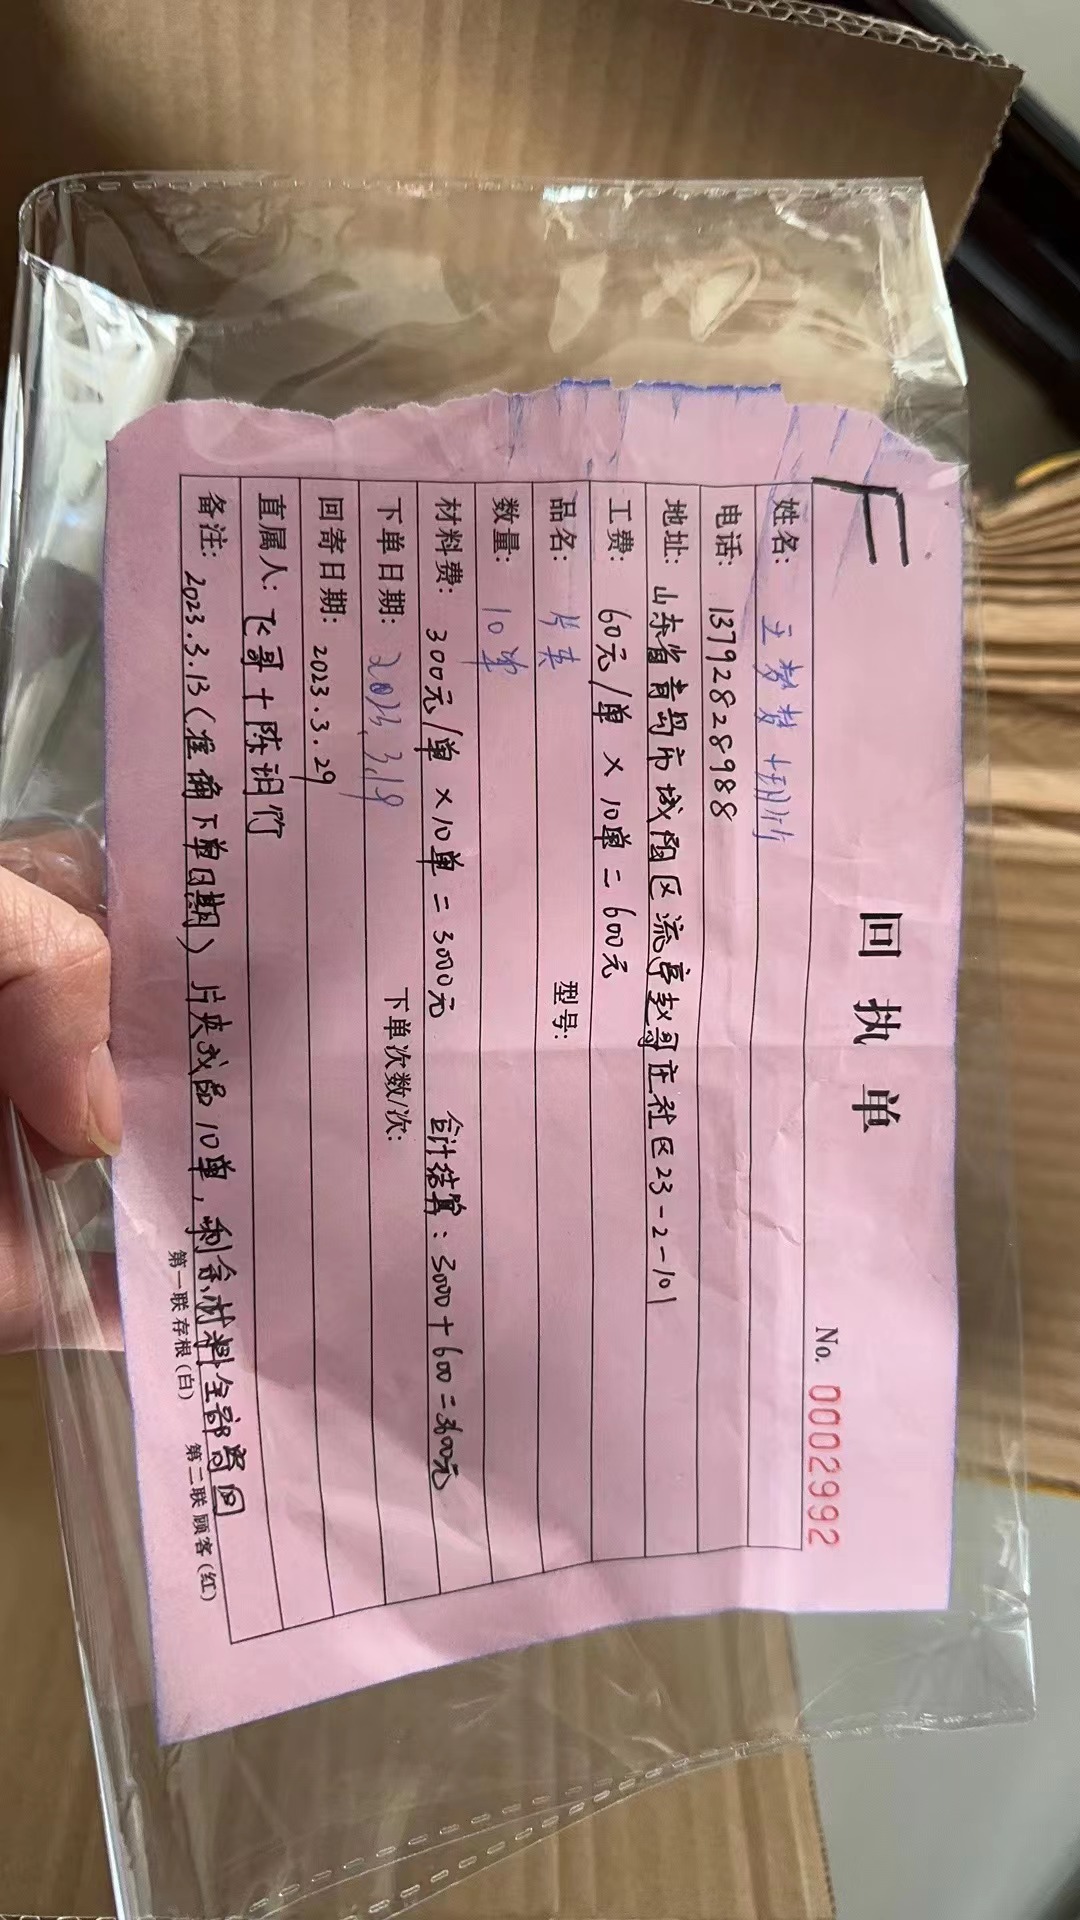 回执单
No. 0002992
姓名:
电话: 13792828988
地址: 山东省青岛市城阳区流亭赵哥庄社区23-2-101
工费: 60元/单 × 10单 = 600元
品名: 片夹 型号:
数量: 10单
材料费: 300元/单 ×10单 = 3000元 合计结算: 3000+600=3600元
下单日期: 2023.3.19 下单次数/次:
回寄日期: 2023.3.29
直属人: 飞哥+陈玥竹
备注: 2023.3.13(准确下单日期) 片夹成品10单, 剩余材料全部寄回
第一联 存根(白) 第二联 顾客(红)